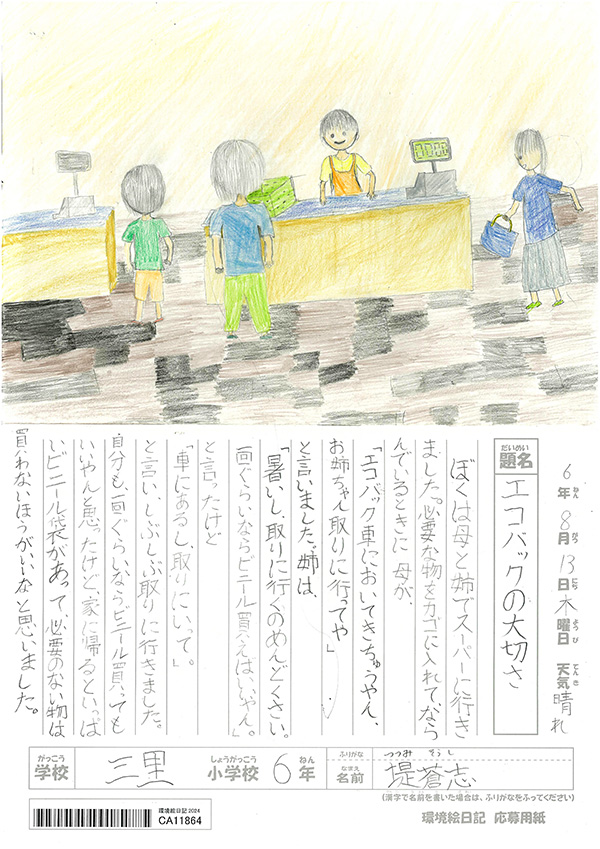 6年8月13日木曜日 天気晴れ
ねん がつ にち ようび てんき
だいめい
題名 エコバックの大切さ
ぼくは母と姉でスーパーに行き
ました。必要な物をカゴに入れて、なら
んでいるときに母が、
「エコバック車においてきちゅうやん、
お姉ちゃん取りに行ってや」
と言いました。姉は、
「暑いし、取りに行くのめんどくさい。
一回ぐらいならビニール買えばいいやん。」
と言ったけど
「車にあるし、取りにいって」。
と言い、しぶしぶ取りに行きました。
自分も、一回ぐらいならビニール買っても
いいやんと思ったけど、家に帰るといっぱ
いビニール袋があって、必要のない物は
買わないほうがいいなと思いました。
がっこう しょうがっこう ねん ふりがな つつみ そうし
学校 三里 小学校 6年 なまえ 名前 堤蒼志
(漢字で名前を書いた場合は、ふりがなをふってください)
環境絵日記 2024
CA11864
環境絵日記 応募用紙